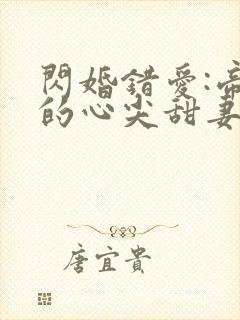 閃婚錯愛:帝
的心尖甜妻
唐宜貴